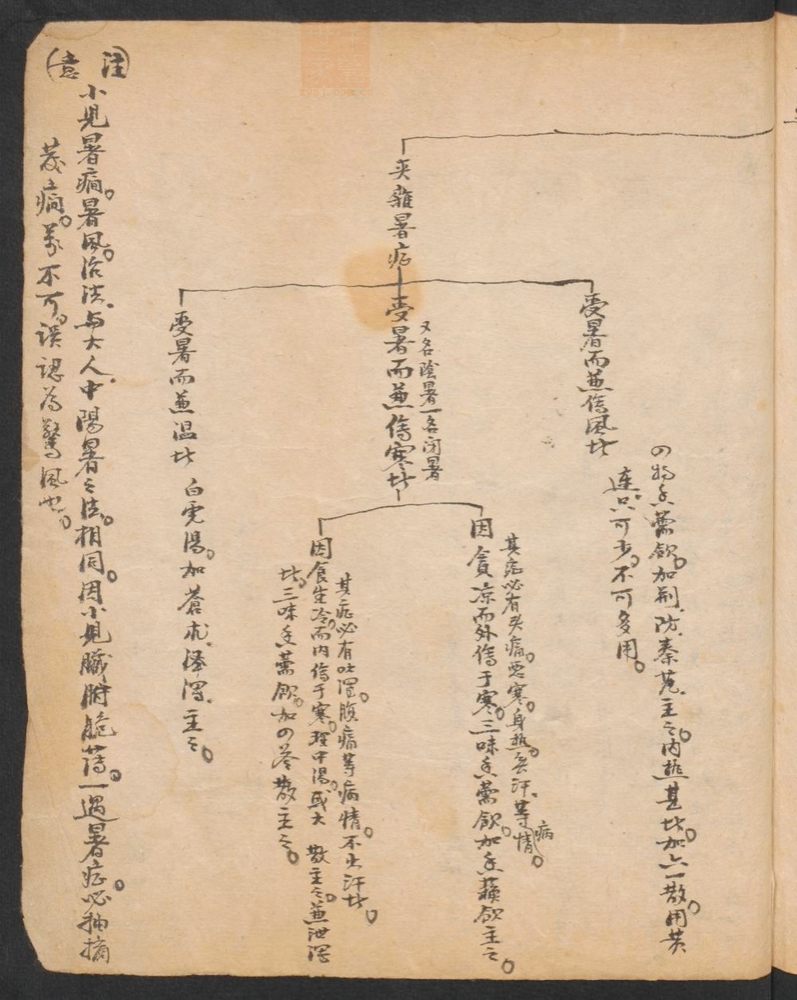 夾雜暑症
受暑而兼傷風者
四物香薷飲。加荊。防。秦艽。主之。內熱甚者。加六一散。用黃
連。只可少。不可多用。
受暑而兼傷寒者
又名陰暑一名閉暑
因貪凉而外傷于寒。三味香薷飲。加香蘇飲主之。
其症必有头痛。惡寒。身熱。無汗。等病情。
因食生冷。而内傷于寒。理中湯。或大 散主之。兼泄瀉
者。三味香薷飲。加四苓散主之。
其症必有吐瀉。腹痛等病情。不出汗者。
受暑而兼温者 白虎湯。加蒼朮。澤瀉。主之。
(注意)
小児暑痫。暑風。治法。与大人。中陽暑之法。相同。因小児臟腑脆薄。一遇暑症。必抽搐
發痫。萬不可。误認為驚風也。